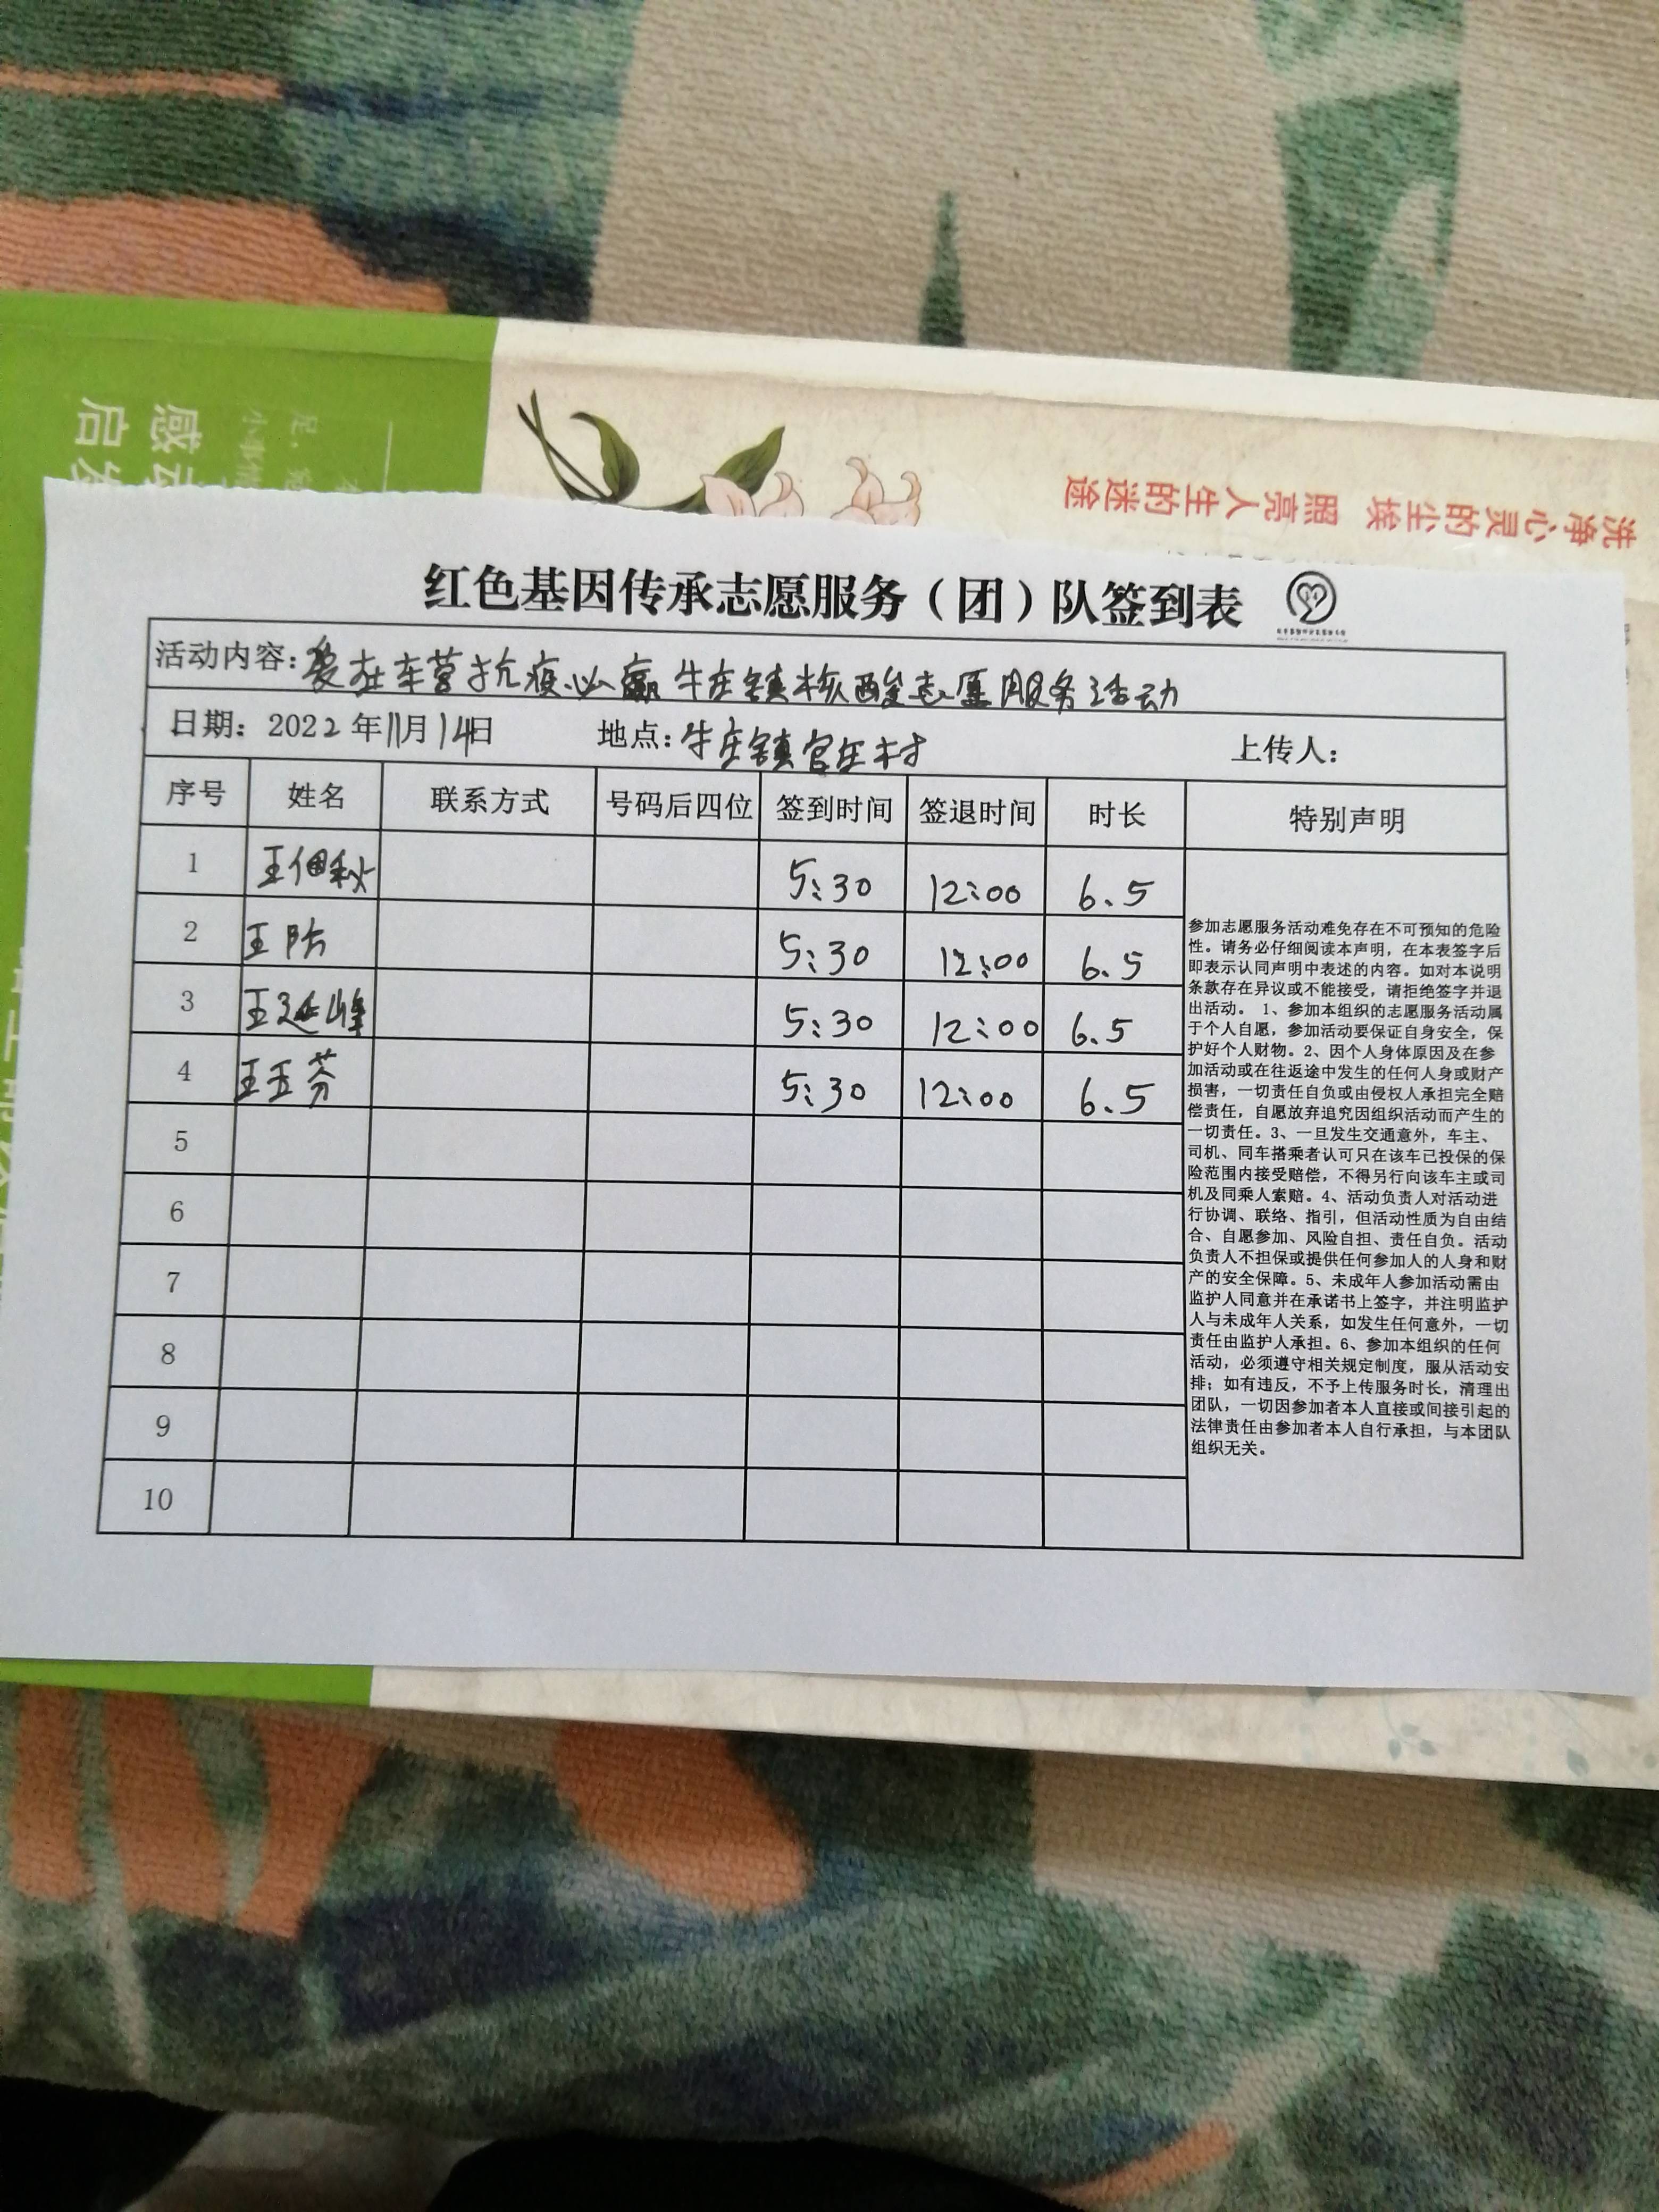 洗净心灵的尘埃 照亮人生的迷途
感
启
红色基因传承志愿服务（团）队签到表
活动内容：爱在东营抗疫必赢 牛庄镇核酸志愿服务活动
日期：2022年11月14日 地点：牛庄镇官庄村 上传人：
序号 姓名 联系方式 号码后四位 签到时间 签退时间 时长 特别声明
1 王佃秋 5:30 12:00 6.5
2 王防 5:30 12:00 6.5
3 王延峰 5:30 12:00 6.5
4 王玉芬 5:30 12:00 6.5
5
6
7
8
9
10
参加志愿服务活动难免存在不可预知的危险
性。请务必仔细阅读本声明，在本表签字后
即表示认同声明中表述的内容。如对本说明
条款存在异议或不能接受，请拒绝签字并退
出活动。 1、参加本组织的志愿服务活动属
于个人自愿，参加活动要保证自身安全，保
护好个人财物。2、因个人身体原因及在参
加活动或在往返途中发生的任何人身或财产
损害，一切责任自负或由侵权人承担完全赔
偿责任，自愿放弃追究因组织活动而产生的
一切责任。3、一旦发生交通意外，车主、
司机、同车搭乘者认可只在该车已投保的保
险范围内接受赔偿，不得另行向该车主或司
机及同乘人索赔。4、活动负责人对活动进
行协调、联络、指引，但活动性质为自由结
合、自愿参加、风险自担、责任自负。活动
负责人不担保或提供任何参加人的人身和财
产的安全保障。5、未成年人参加活动需由
监护人同意并在承诺书上签字，并注明监护
人与未成年人关系，如发生任何意外，一切
责任由监护人承担。6、参加本组织的任何
活动，必须遵守相关规定制度，服从活动安
排；如有违反，不予上传服务时长，清理出
团队，一切因参加者本人直接或间接引起的
法律责任由参加者本人自行承担，与本团队
组织无关。